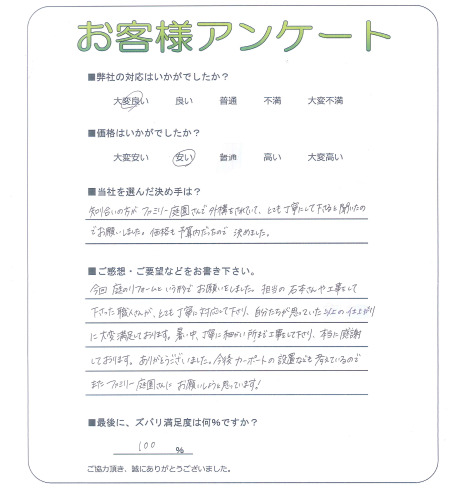 お客様アンケート
■弊社の対応はいかがでしたか？
大変良い 良い 普通 不満 大変不満
■価格はいかがでしたか？
大変安い 安い 普通 高い 大変高い
■当社を選んだ決め手は？
知り合いの方が ファミリー庭園さんで外構をされていて、とても丁寧にして下さると聞いたの
でお願いしました。価格も予算内だったので 決めました。
■ご感想・ご要望などをお書き下さい。
今回 庭のリフォームという形で お願いをしました。担当の 石本さんや工事をして
下さった職人さんが、とても丁寧に対応して下り、自分たちが思っていた以上の仕上がり
に大変満足しております。暑い中、丁寧に細かい所まで工事をして下り、本当に感謝
しております。ありがとうございました。今後カーポートの設置なども考えているので
またファミリー庭園さんに お願いしようと思っています!
■最後に、ズバリ満足度は何%ですか？
100 %
ご協力頂き、誠にありがとうございました。